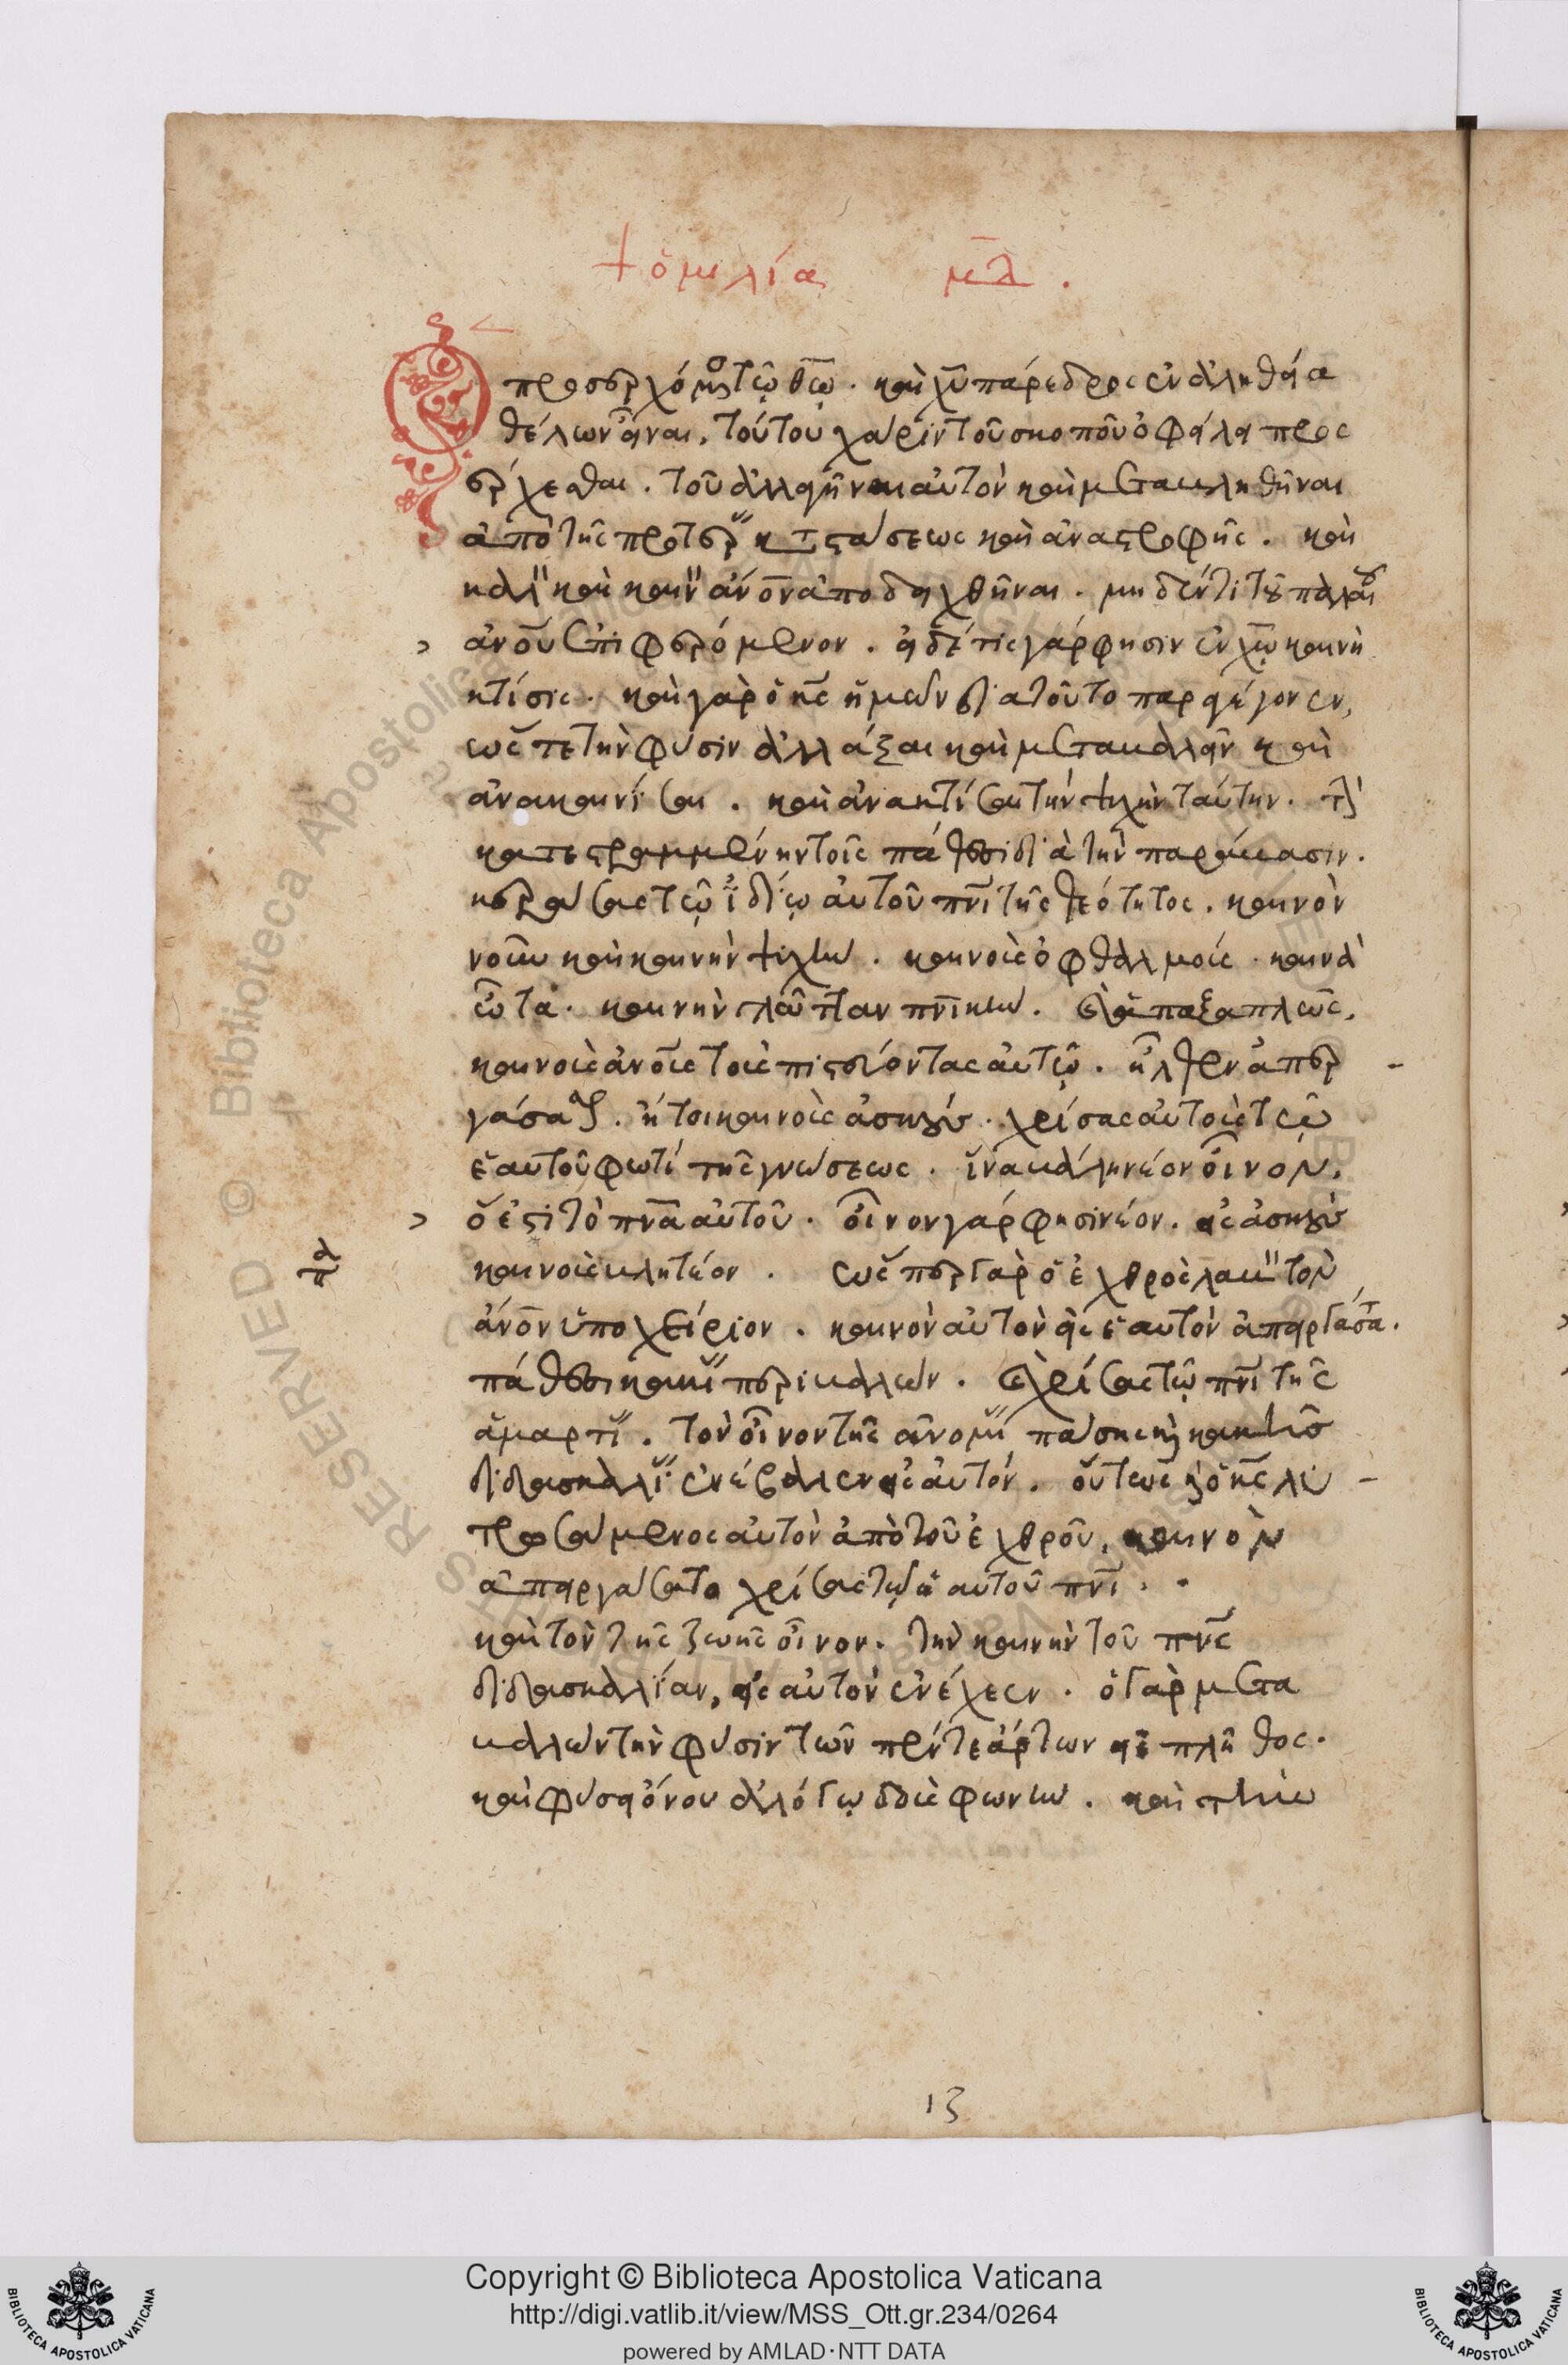 + ὁμιλία μδ.
Ὁ προσερχόμενος τῷ θῶ. καὶ χῦ πάρεδρος ἐν ἀληθεία
θέλων εἶναι, τούτου χάριν τοῦ σκοποῦ ὀφείλει προς
έρχεσθαι. τοῦ ἀλλαγῆναι αὐτὸν καὶ μεταβληθῆναι
ἀπὸ τῆς προτέρας καταστάσεως καὶ ἀναστροφῆς. καὶ
καλὸν καὶ καινὸν ἀνον ἀποδειχθῆναι. μηδέν τι τοῦ παλαιοῦ
ἀνου ἐπιφερόμενον. εἴ τις γάρ φησιν ἐν χῶ καινὴ
κτίσις. καὶ γὰρ ὁ κς ἡμῶν διατοῦτο παραγέγονεν,
ὥστε τὴν φύσιν ἀλλάξαι καὶ μεταβαλεῖν καὶ
ἀνακαινίσαι. καὶ ἀνακτίσαι τὴν ψυχὴν ταύτην. τὴν
κατεστραμμένην τοῖς πάθεσι διὰ τὴν παράβασιν.
κεράσας τῷ ἰδίῳ αὐτοῦ πνι τῆς θεότητος. καινὸν
νοῦν καὶ καινὴν ψυχὴν. καινοὺς ὀφθαλμούς. καινὰ
ὦτα. καινὴν γλῶτταν πνικὴν. καὶ ἅπαξ ἁπλῶς,
καινοὺς ἀνους τοὺς πιστεύοντας αὐτῷ. ἦλθεν ἀπερ
γάσασθαι. ἤτοι καινοὺς ἀσκοὺς. χρίσας αὐτοὺς τῷ
ἑαυτοῦ φωτί τῆς γνώσεως. ἵνα βάλη νέον οἶνον,
ὅ ἐστι τὸ πνα αὐτοῦ. οἶνον γάρ φησι νέον. εἰς ἀσκοὺς
καινοὺς βλητέον. ὥσπερ γὰρ ὁ ἐχθρὸς λαβὼν τὸν
ἀνον ὑποχείριον. καινὸν αὐτὸν εἰς ἑαυτὸν ἀπειργάσατο.
πάθεσι κακίας περιβαλὼν. καὶ χρίσας τῷ πνι τῆς
ἁμαρτίας. τὸν οἶνον τῆς ἀνομίας πάσης καὶ κακῆς
διδασκαλίας ἐνέβαλεν εἰς αὐτόν. οὕτως καὶ ὁ κς λυ
τρωσάμενος αὐτὸν ἀπὸ τοῦ ἐχθροῦ, καινὸν
ἀπειργάσατο χρίσας τῷ αὐτοῦ πνι.
καὶ τὸν τῆς ζωῆς οἶνον. τὴν καινὴν τοῦ πνς
διδασκαλίαν, εἰς αὐτὸν ἐνέχεεν. ὁ γὰρ μετα
βαλὼν τὴν φύσιν τῶν πέντε ἄρτων εἰς πλῆθος.
καὶ φύσει ὄνου ἀλόγῳ δοὺς φωνὴν. καὶ τὴν
πδ
ιζ
Copyright © Biblioteca Apostolica Vaticana
http://digi.vatlib.it/view/MSS_Ott.gr.234/0264
powered by AMLAD·NTT DATA